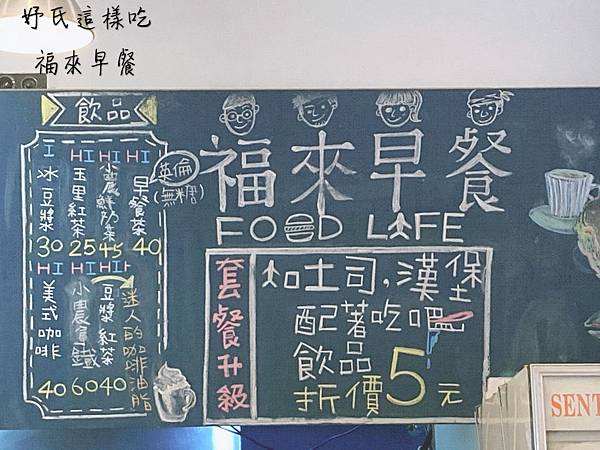 妤氏這樣吃
福來早餐
飲品
I 冰豆漿 30
HI 玉里紅茶 25
HI 小農鮮奶茶 45
HI 早餐茶 40
英倫
(無糖)
HI 美式咖啡 40
HI 小農拿鐵 60
HI 豆漿紅茶 40
迷人的咖啡油脂
福來早餐
FOOD LAFE
套餐升級
加吐司,漢堡
配著吃吧
飲品
折價5元
SENT